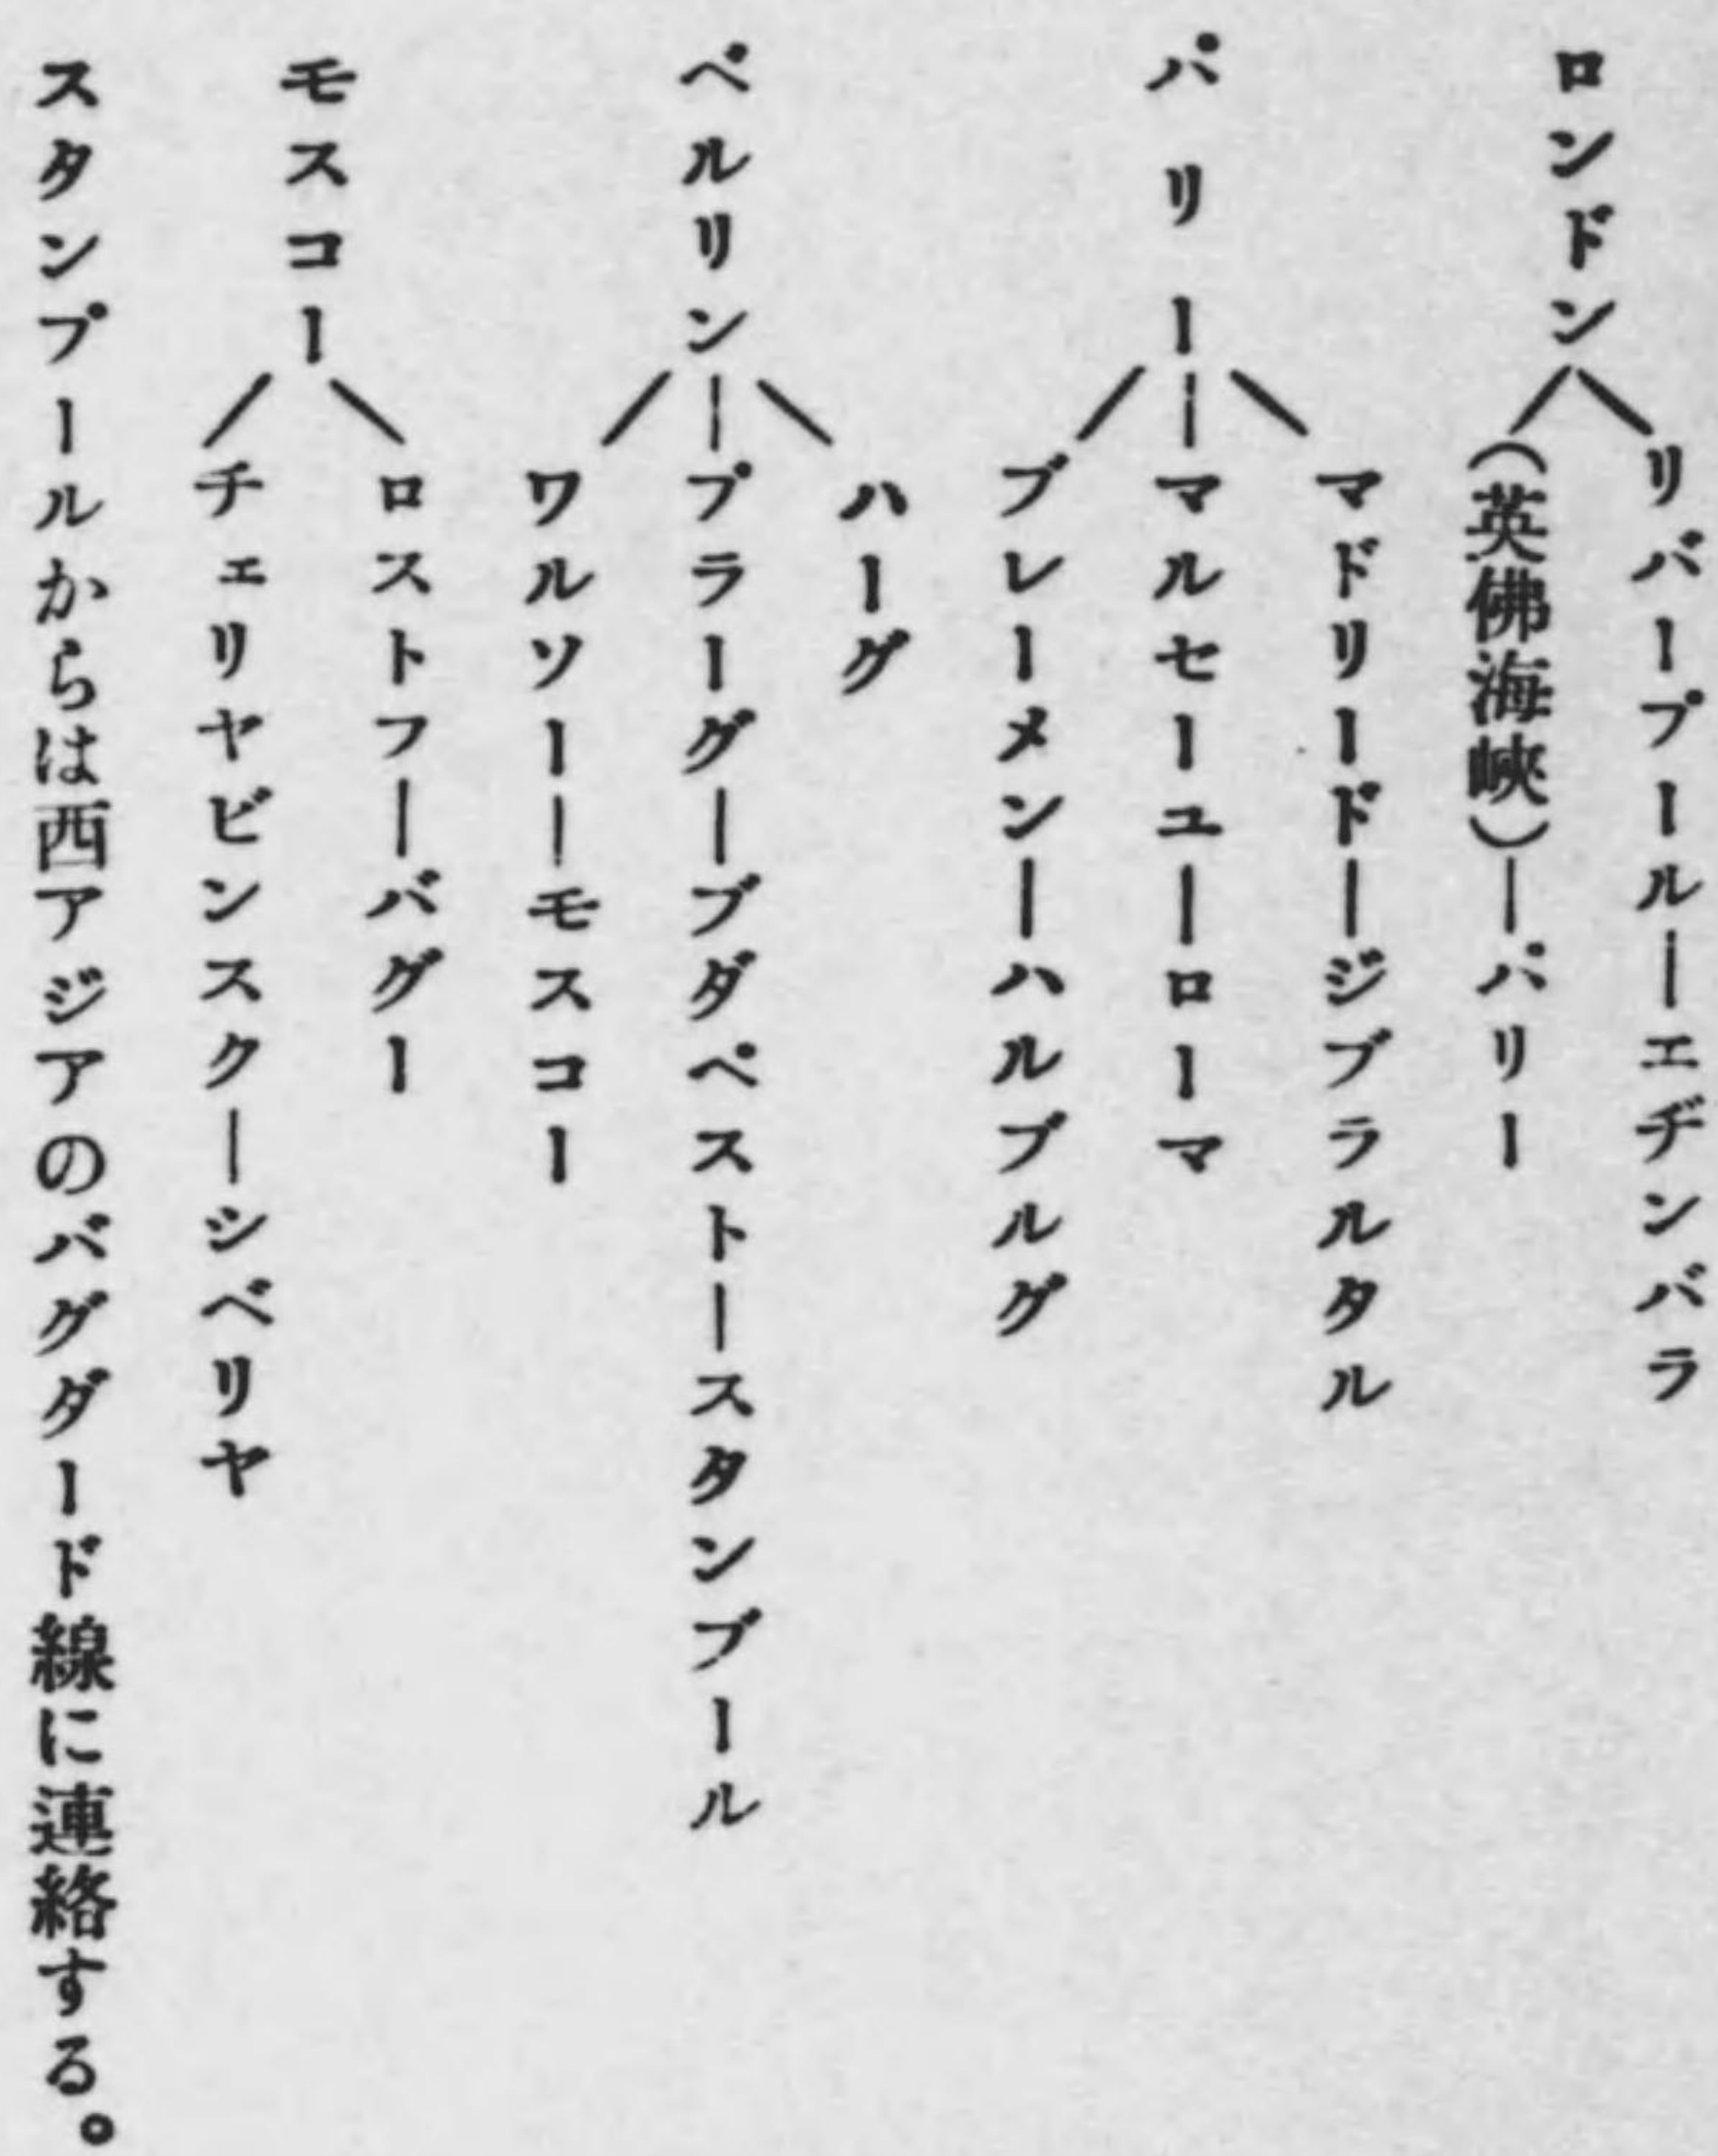 ロンドン
リバープール―エヂンバラ
(英佛海峽)―パリー
パリー
マドリード―ジブラルタル
マルセーユ―ローマ
ブレーメン―ハルブルグ
ベルリン
ハーグ
プラーグ―ブダペスト―スタンブール
ワルソー―モスコー
モスコー
ロストフ―バグー
チェリヤビンスク―シベリヤ
スタンプールからは西アジアのバグダード線に連絡する。